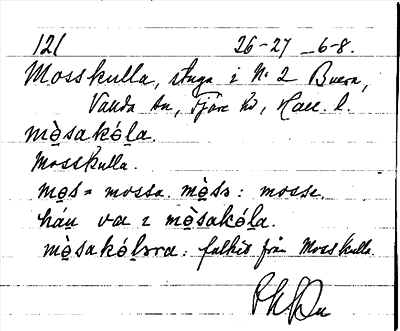 121 26-27 6-8.
Mosskulla, stuga i № 2 Buera,
Vanda sn, Fjäre hd, Hall. l.
mo̤̊sakó̤la.
Mosskulla.
mo̤s = mossa. mò̤sə: mosse.
hán va i mò̤sakó̤la.
mò̤sakó̤ləra: folket från Mosskulla.